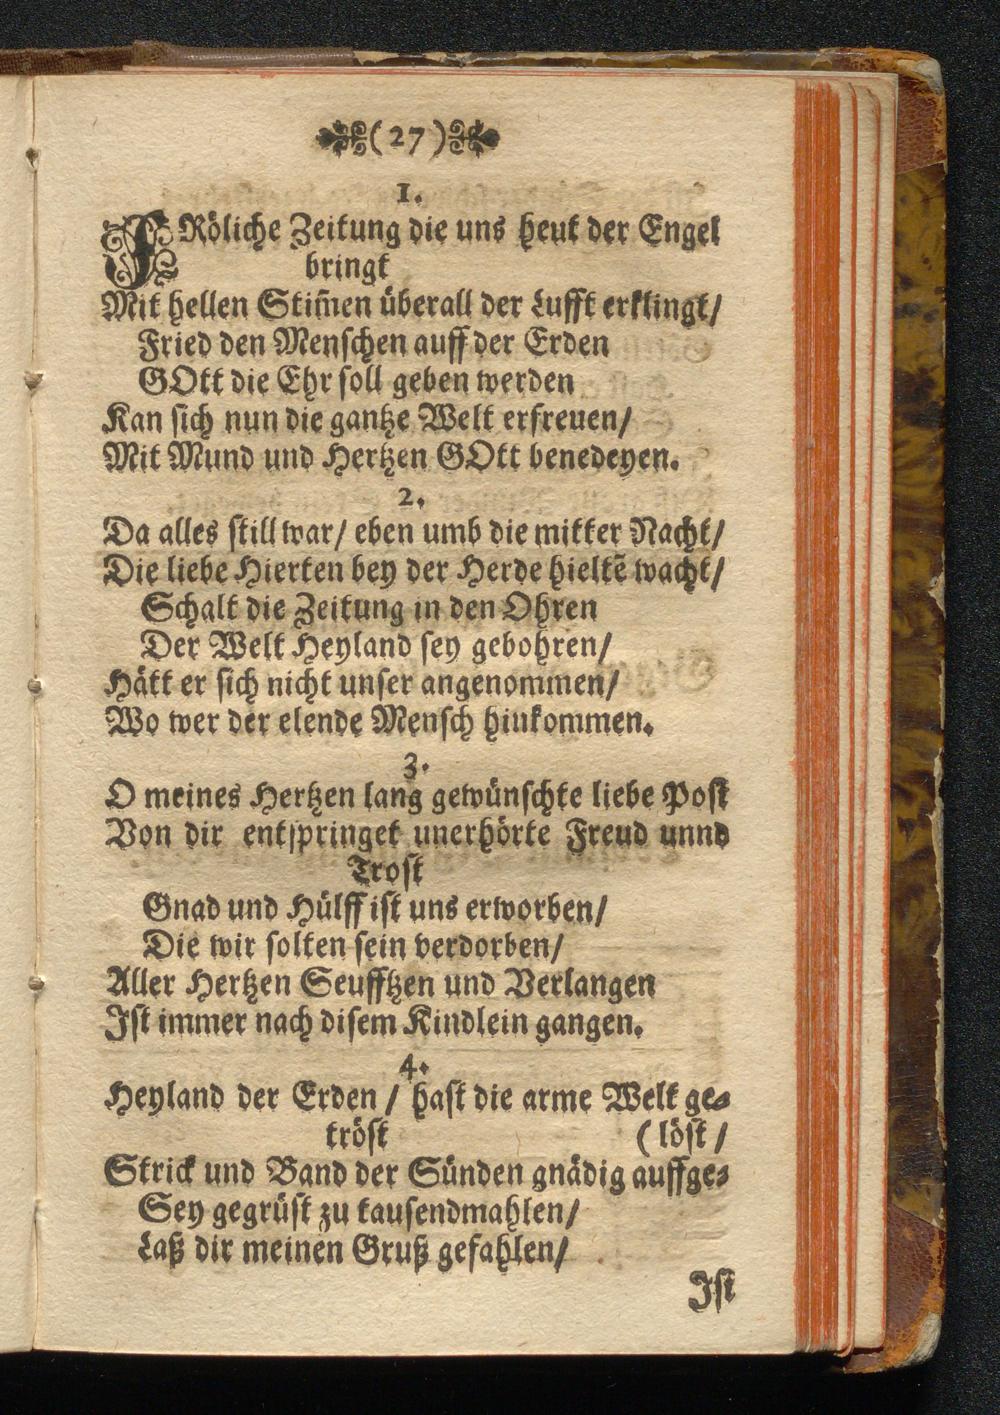 (27)
1.
FRöliche Zeitung die uns heut der Engel
bringt
Mit hellen Stim̃en überall der Lufft erklingt/
Fried den Menschen auff der Erden
GOtt die Ehr soll geben werden
Kan sich nun die gantze Welt erfreuen/
Mit Mund und Hertzen GOtt benedeyen.
2.
Da alles still war/ eben umb die mitter Nacht/
Die liebe Hierten bey der Herde hieltẽ wacht/
Schalt die Zeitung in den Ohren
Der Welt Heyland sey gebohren/
Hätt er sich nicht unser angenommen/
Wo wer der elende Mensch hinkommen.
3.
O meines Hertzen lang gewünschte liebe Post
Von dir entspringet unerhörte Freud unnd
Trost
Gnad und Hülff ist uns erworben/
Die wir solten sein verdorben/
Aller Hertzen Seufftzen und Verlangen
Ist immer nach disem Kindlein gangen.
4.
Heyland der Erden / hast die arme Welt ge-
tröst (löst /
Strick und Band der Sünden gnädig auffge-
Sey gegrüst zu tausendmahlen/
Laß dir meinen Gruß gefahlen/
Ist